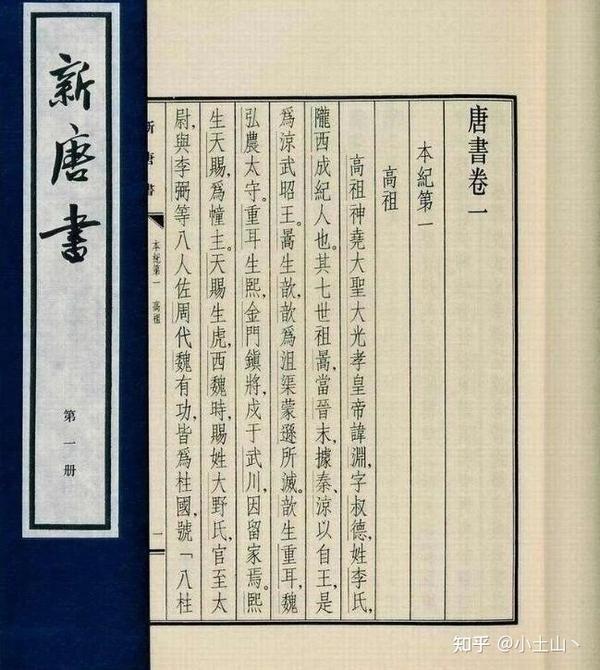 新唐書
第一册
唐書卷一
本紀第一
高祖
高祖神堯大聖大光孝皇帝諱淵，字叔德，姓李氏，
隴西成紀人也。其七世祖暠，當晉末，據秦、涼以自王，是
爲涼武昭王。暠生歆，歆爲沮渠蒙遜所滅。歆生重耳，魏
弘農太守。重耳生熙，金門鎮將，戍于武川，因留家焉。熙
生天賜，爲幢主。天賜生虎，西魏時，賜姓大野氏，官至太
尉，與李弼等八人佐周代魏有功，皆爲柱國，號「八柱
新唐書
本紀第一 高祖
一
知乎 @小土山丶